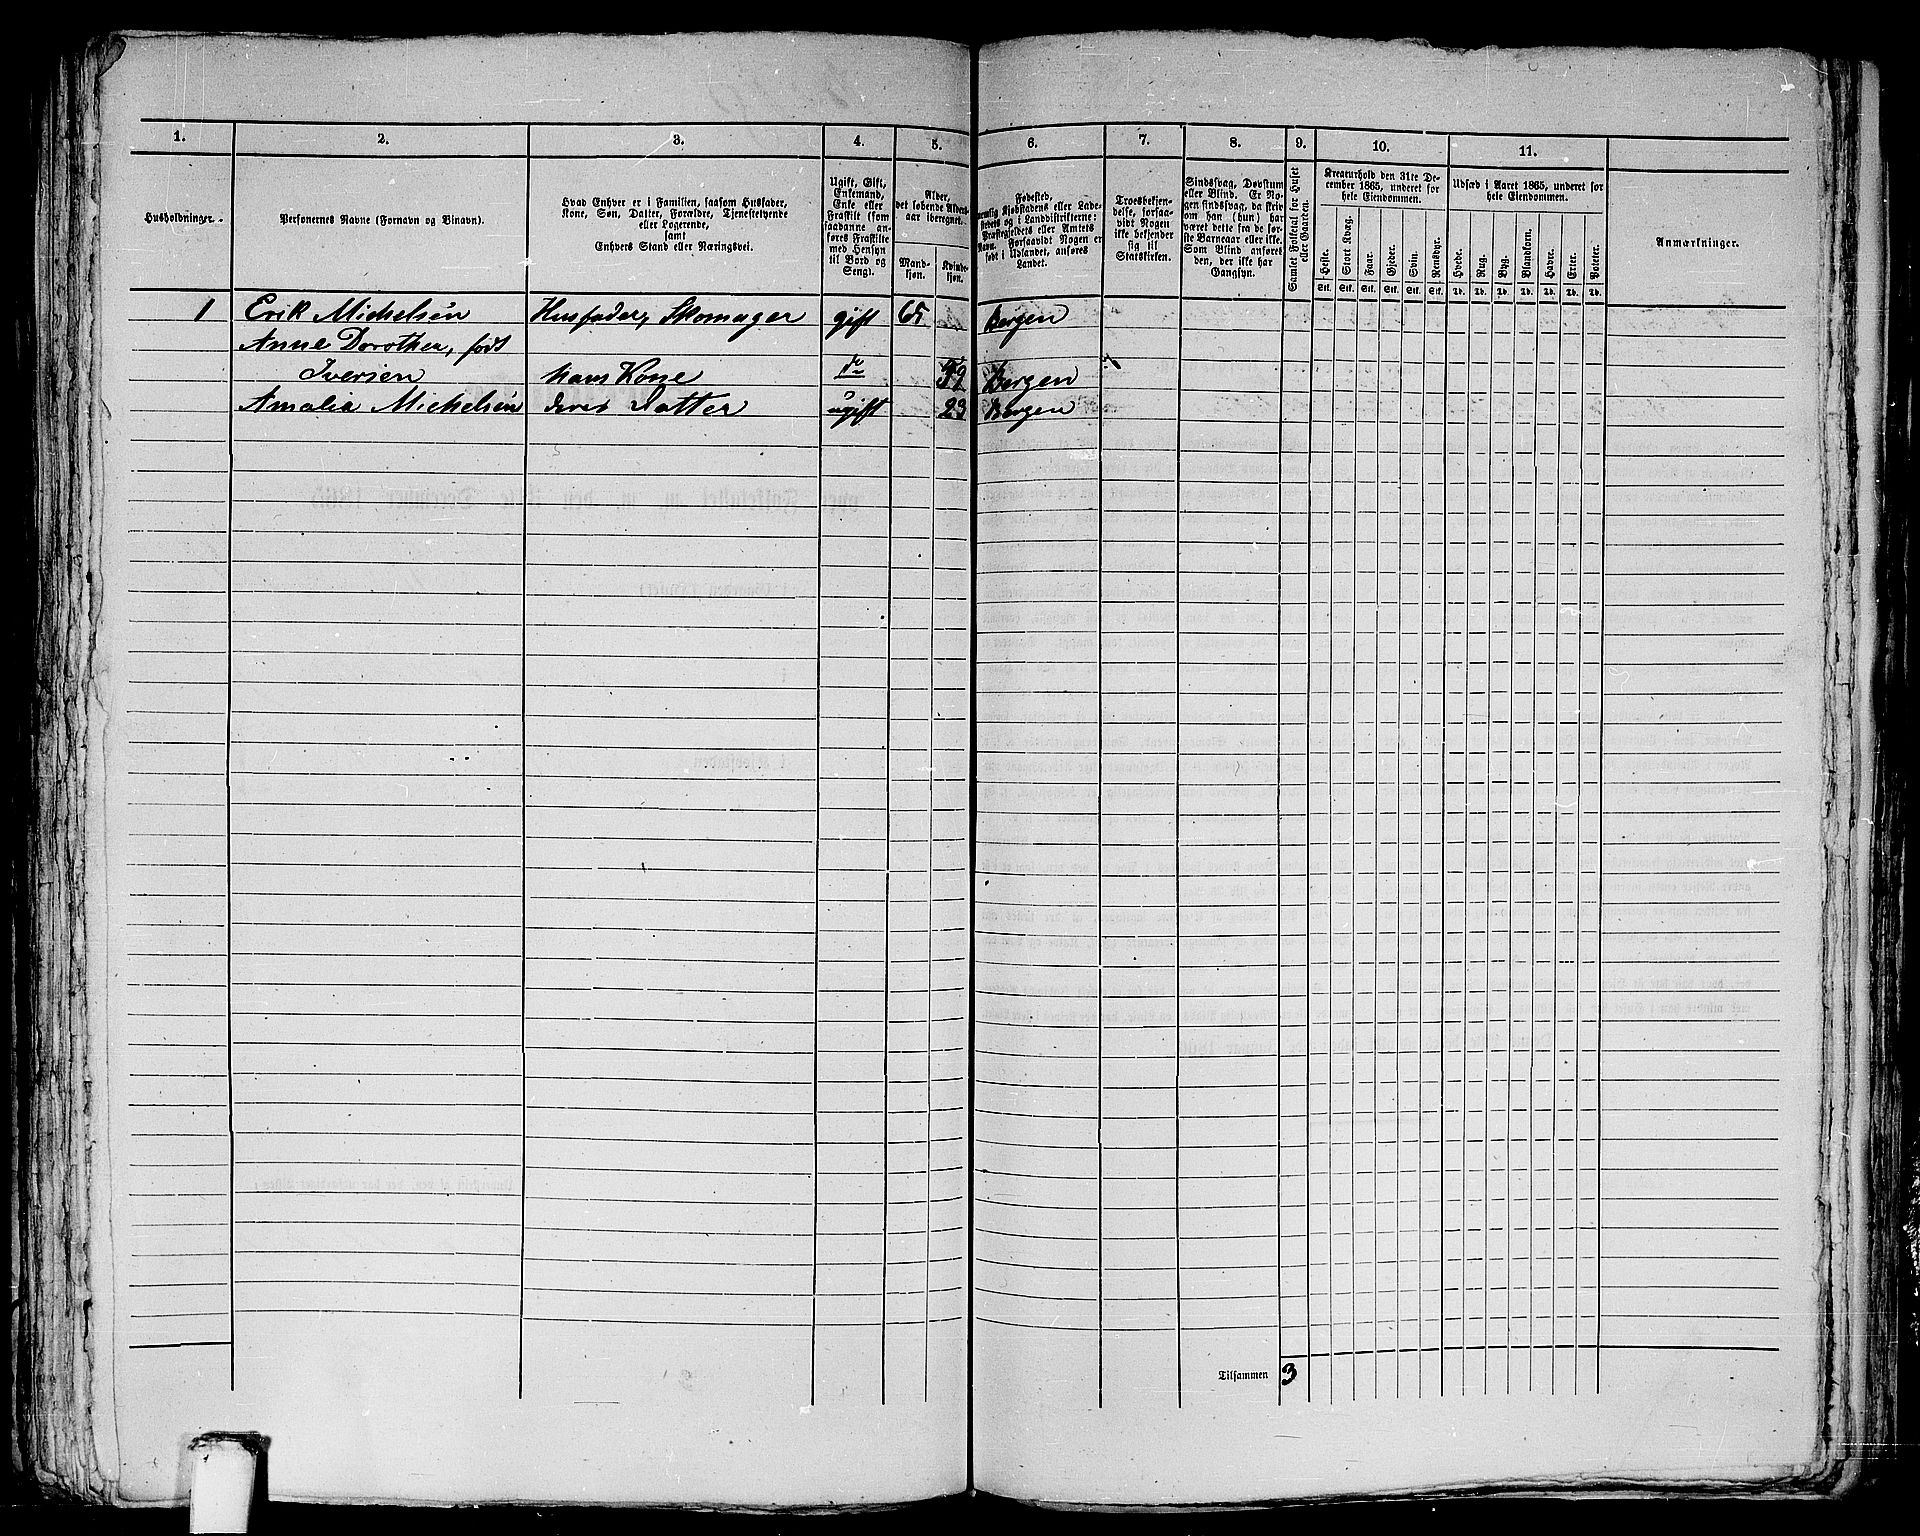 1. 2. 3. 4. 5. 6. 7. 8. 9. 10. 11.
Husholdninger.
Personernes Navne (Fornavn og Binavn).
Hvad Enhver er i Familien, saasom Husfader,
Kone, Søn, Datter, Forældre, Tjenestetyende
eller Logerende,
samt
Enhvers Stand eller Næringsvei.
Ugift, Gift,
Enkemand,
Enke eller
Fraskilt (som
saadanne an-
føres Fraskilte
med Hensyn
til Bord og
Seng).
Alder,
det løbende Alders-
aar iberegnet.
Mand-
kjøn.
Kvinde-
kjøn.
Fødested,
nemlig Kjøbstadens eller Lade-
stedets og i Landdistrikterne:
Præstegjeldets eller Amtets
Navn. Forsaavidt Nogen er
født i Udlandet, anføres
Landet.
Troesbekjen-
delse, forsaa-
vidt Nogen
ikke bekjender
sig til
Statskirken.
Sindssvag, Døvstum
eller Blind. Er No-
gen sindssvag, da skriv
om han (hun) har
været dette fra de før-
ste Barneaar eller ikke.
Som Blind anføres
den, der ikke har
Gangsyn.
Samlet Folketal for Huset
eller Gaarden.
Kreaturhold den 31te De-
cember 1865, underet for
hele Eiendommen.
Heste. Stort Kvæg. Faar. Gjeder. Svin. Rensdyr.
Stk. Stk. Stk. Stk. Stk. Stk.
Udsæd i Aaret 1865, underet for
hele Eiendommen.
Hvede. Rug. Byg. Blandkorn. Havre. Erter. Poteter.
Td. Td. Td. Td. Td. Td. Td.
Anmærkninger.
1 Erik Michelsen Husfader, Skomager gift 65 Bergen
Anne Dorothea, født
Iversen hans Kone do Bergen
Amalia Michelsen deres Datter ugift 23 Bergen
Tilsammen 3